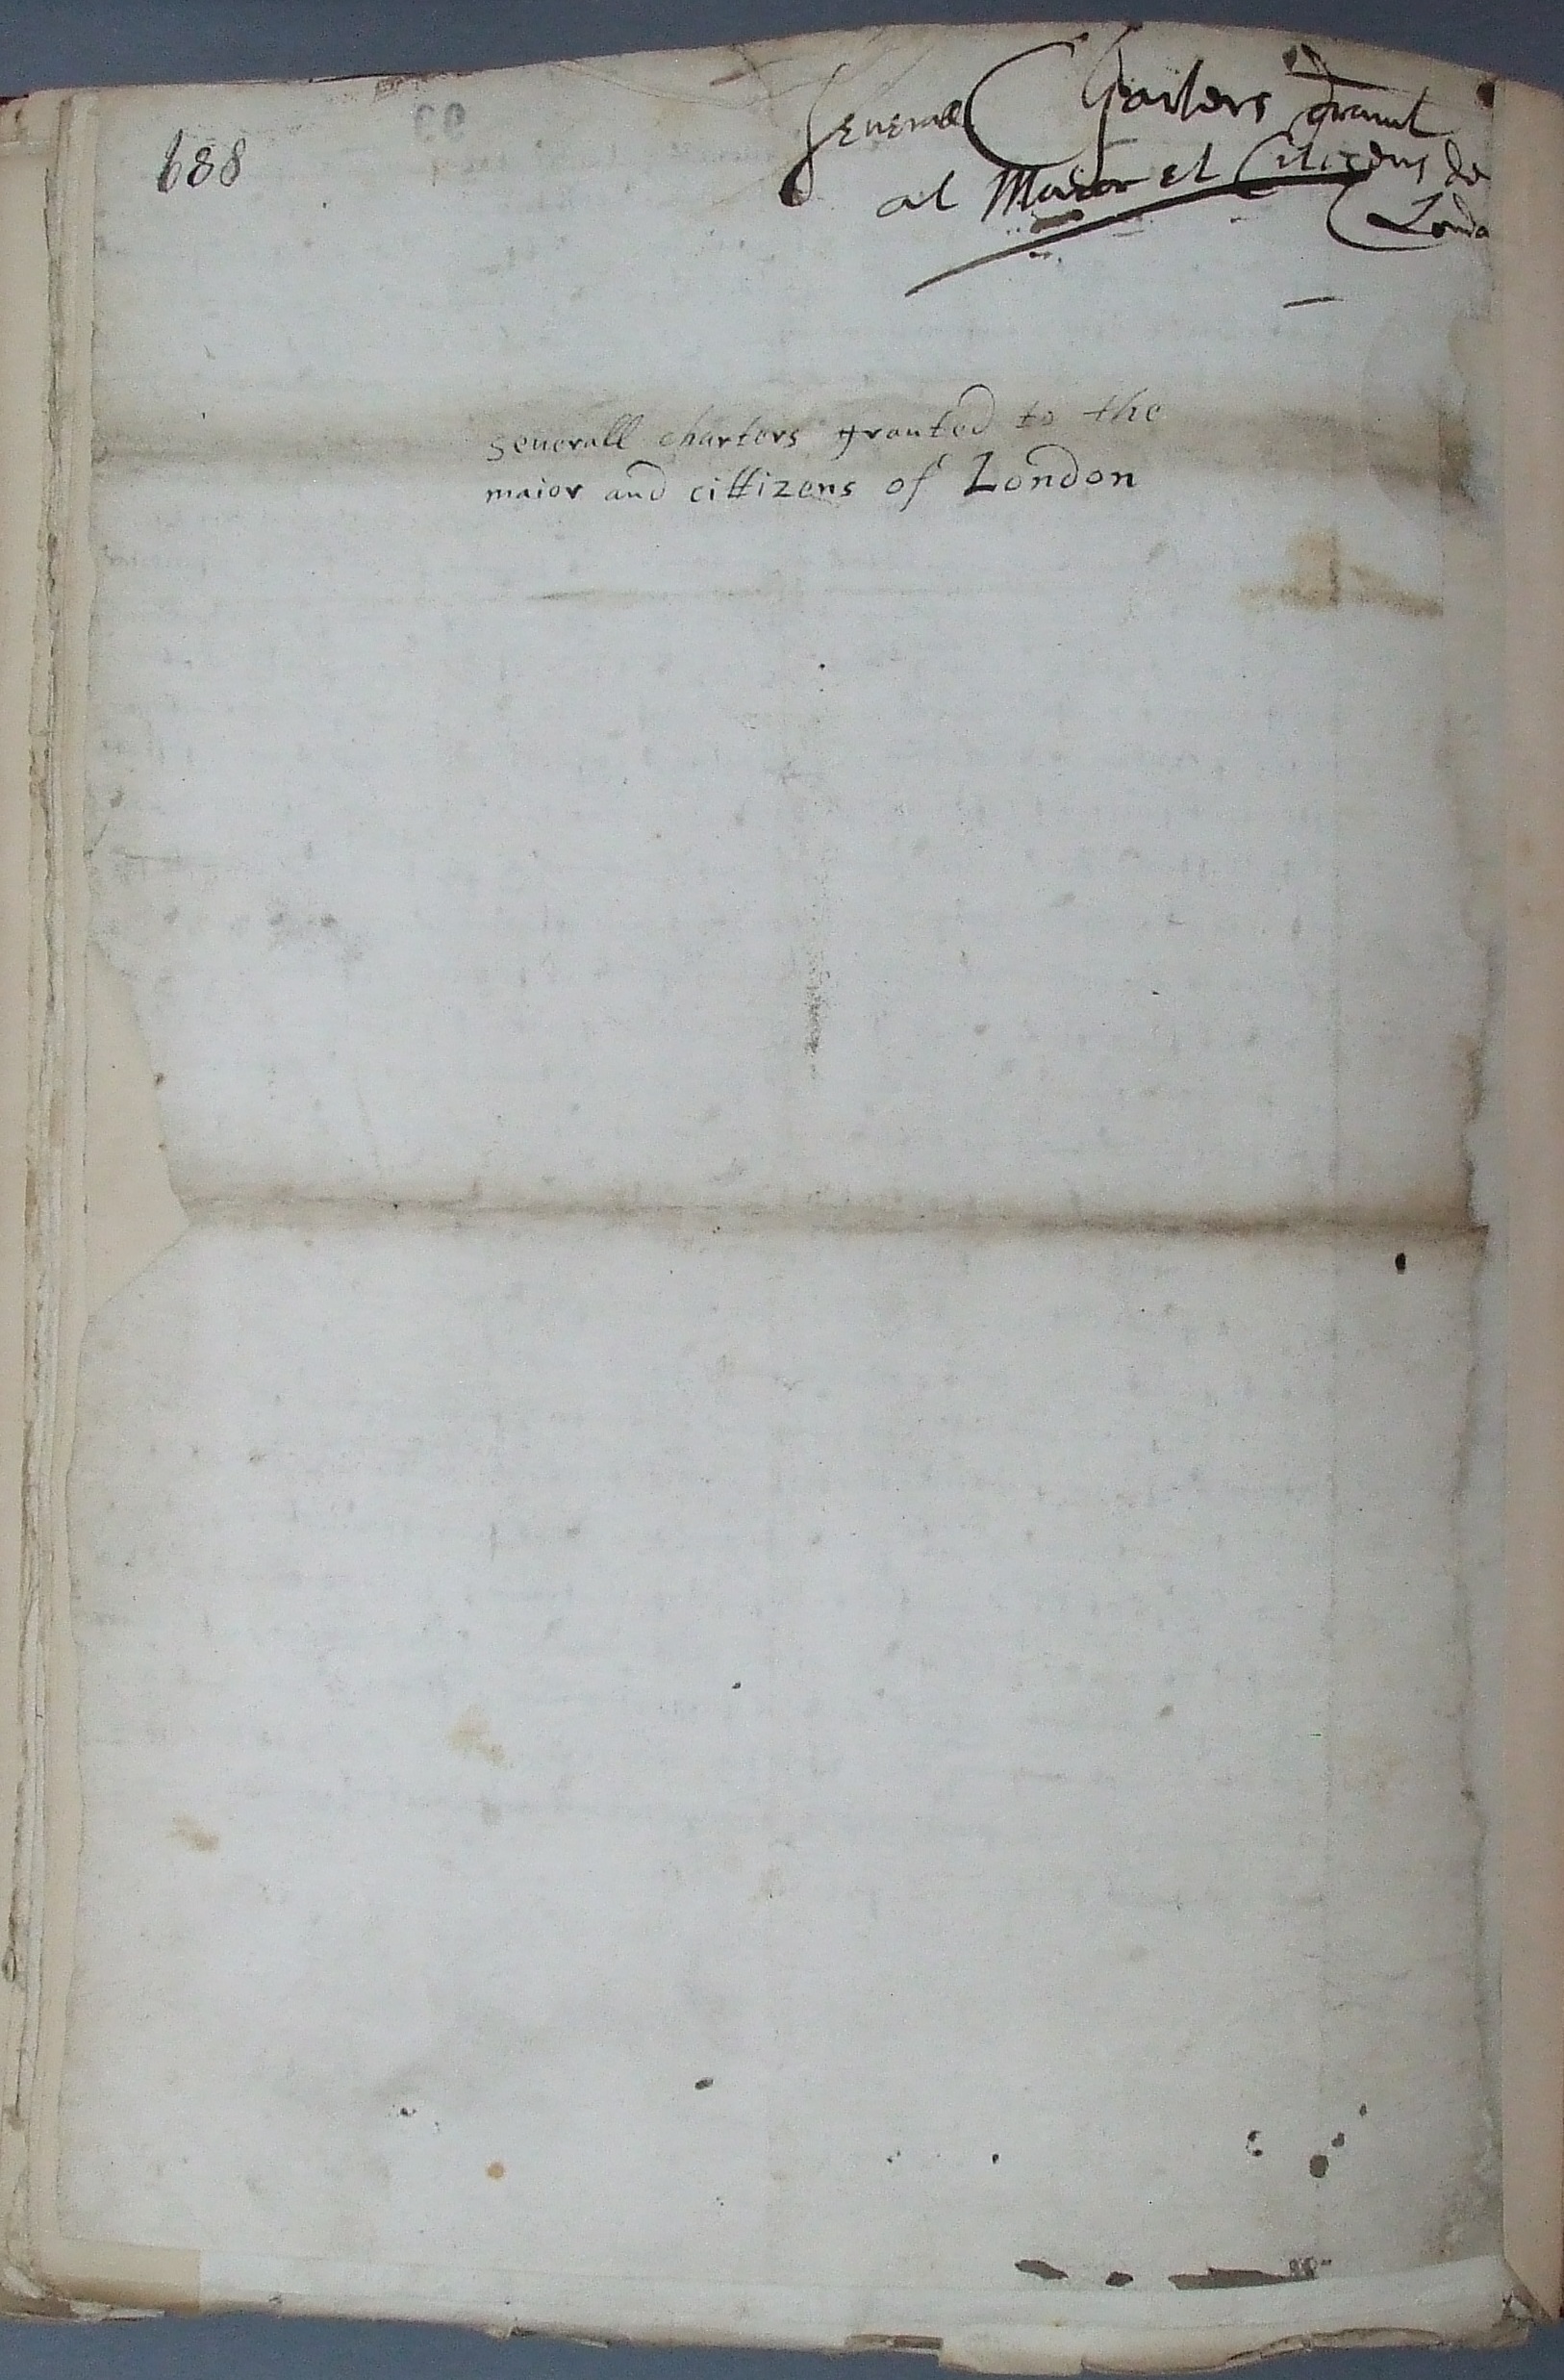 688
Severall Charters graunt
al Maior et Citizens de
Londo
severall charters granted to the
maior and cittizens of London